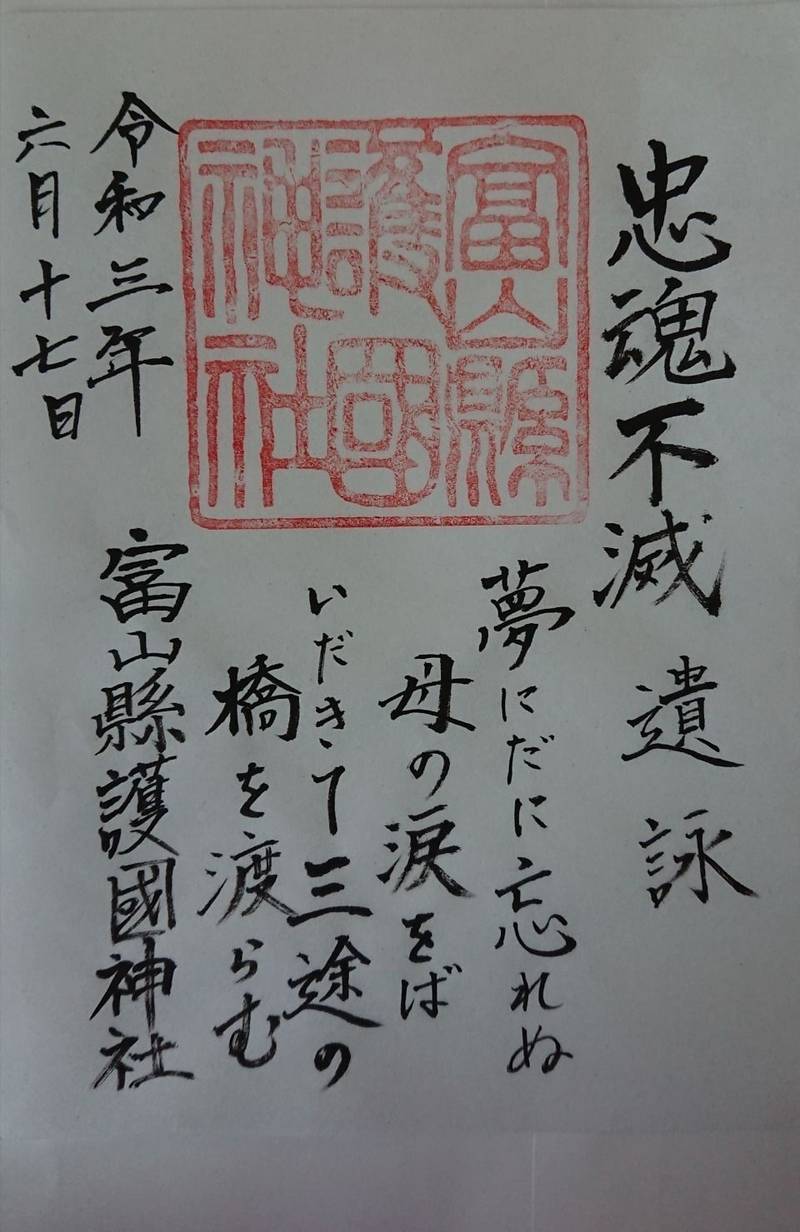 忠魂不滅 遺詠
夢にだに忘れぬ
母の涙をば
いだきて三途の
橋を渡らむ
富山縣護國神社
富山縣護國神社
令和三年
六月十七日